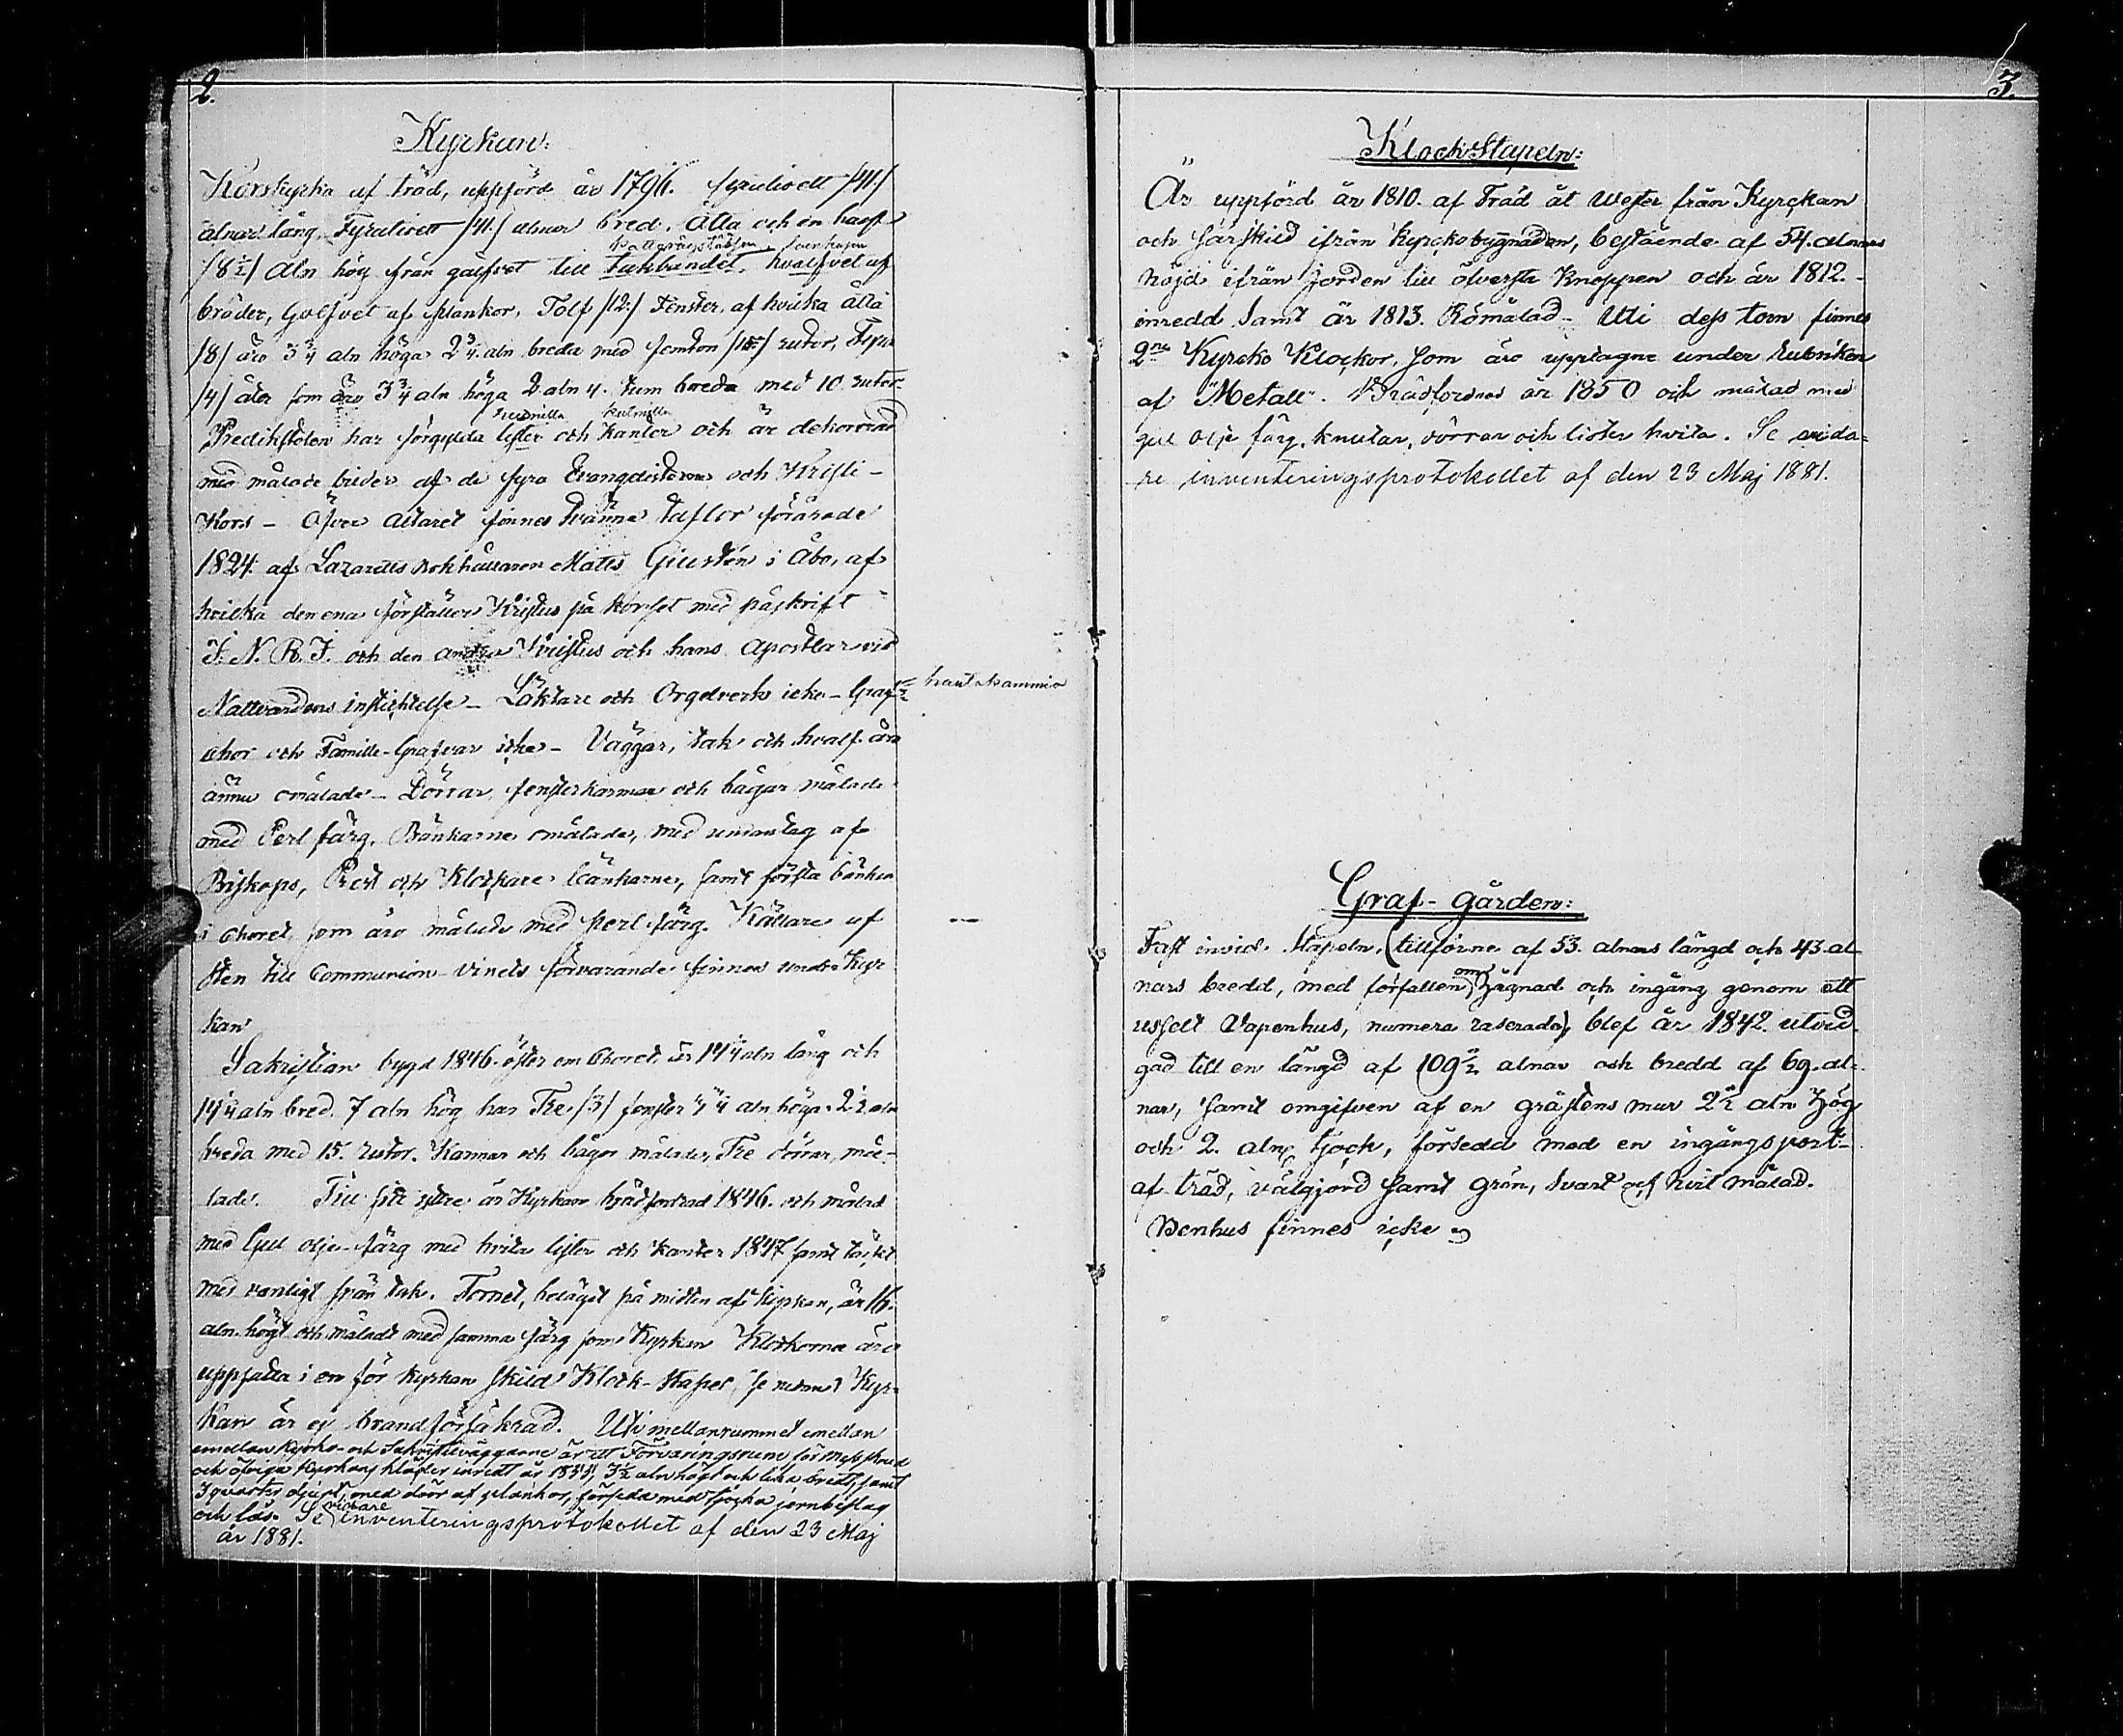 2.
Kyrkan:
Korskyrka af träd, uppförd år 1796. fyratioett /41/
alnar lång, Fyratioett /41/ alnar bred. Åtta och en half
/8½/ Aln hög från gålfvet till takbandet, hvalfvet af
bräder, Golfvet af plankor, Tolf /12/ Fenster, af hvilka åtta
/8/ äro 3¾ aln höga 2¾ aln breda med femton /15/ rutor, Fyra
/4/ åter som äro 3¾ aln höga 2 aln 4. tum breda med 10 rutor
Predikstolen har förgylda lister och Kanter och är dekorerad
med målade bilder af de fyra Evangelisterna och Kristi-
Kors - Öfver altaret finnes tvänne taflor förärade
1824. af Lazaretts Bokhållaren Matts Giustén i Åbo, af
hvilka den ena förställer Kristus på Korset med påskrift
I. N. R. I. och den andra Kristus och hans Apostlar vid
Nattvardens instichtelse - Läktare och Orgelverk icke - Graf-
chor och Famille-Grafvar icke - Väggar, tak och hvalf äro
ännu omålade - Dörrar, fensterkarmar och bågar målade
med Perl färg. Bänkarne omålade, med undantag af
Biskops, Prest och Klockare bänkarne, samt första bänken
i Choret, som äro målade med perl färg. Källare af
sten till Communion-vinets förvarande finnes under Kyr
kan
Sakristian bygd 1846. öster om Choret, är 14¼ aln lång och
14¼ aln bred. 7 aln hög har Tre /3/ fenster aln höga 2½ aln
breda med 15. rutor. Karmar och bågar målade, Tre dörrar, må-
lade. Till sitt yttre är Kyrkan brädfordrad 1846. och målad
med Gul olje-färg med hvita lister och Kanter 1847 samt täckt
med vanligt spån tak. Tornet, beläget på midten af Kyrkan, är 16.
aln högt och måladt med samma färg som Kyrkan Klockorna äro
uppsatta i en för kyrkan skild Klock-Stapel, Kyr-
kan är ej brandförsäkrad. Uti mellanrummet emellan
emellan Kyrko- och Sakristieväggarne är ett Förvaringsrum för Mess skrud
och öfriga Kyrkans kläder inredt år 1854, 3½ aln högt och lika bredt, samt
3 qvarter djupt, med dörr af plankor, försedd med tjocka jernbeslag
och lås. Se vidare inventeringsprotokollet af den 23 Maj
år 1881.
3.
KlockStapeln:
Är uppförd år 1810. af Träd åt Wester från Kyrckan
och särskild ifrån Kyrckobyggnaden, bestående af 54. alnars
höjd ifrån Jorden till öfversta Knoppen och år 1812.-
inredd Samt år 1813. Römålad - Uti dess torn finnes
2ne Kyrcko Klockor, som äro upptagne under rubriken
af "Metall". Brädfordrad år 1850 och målad med
gul olje färg. knutar, dörrar och lister hvita. Se vida-
re inventeringsprotokollet af den 23 Maj 1881.
Graf-gården:
Fast invid Stapeln, (tillförne af 53. alnars längd och 43. al-
nars bredd, med förfallen omhägnad och ingång genom ett
uselt Vapenhus, numera raserade) blef år 1842. utvid
gad till en längd af 109½ alnar och bredd af 69. al-
nar, samt omgifven af en gråstens mur 2½ aln hög
och 2. aln tjock, försedd med en ingångsport-
af träd, välgjord samt grön, svart och hvit målad.
Benhus finnes icke